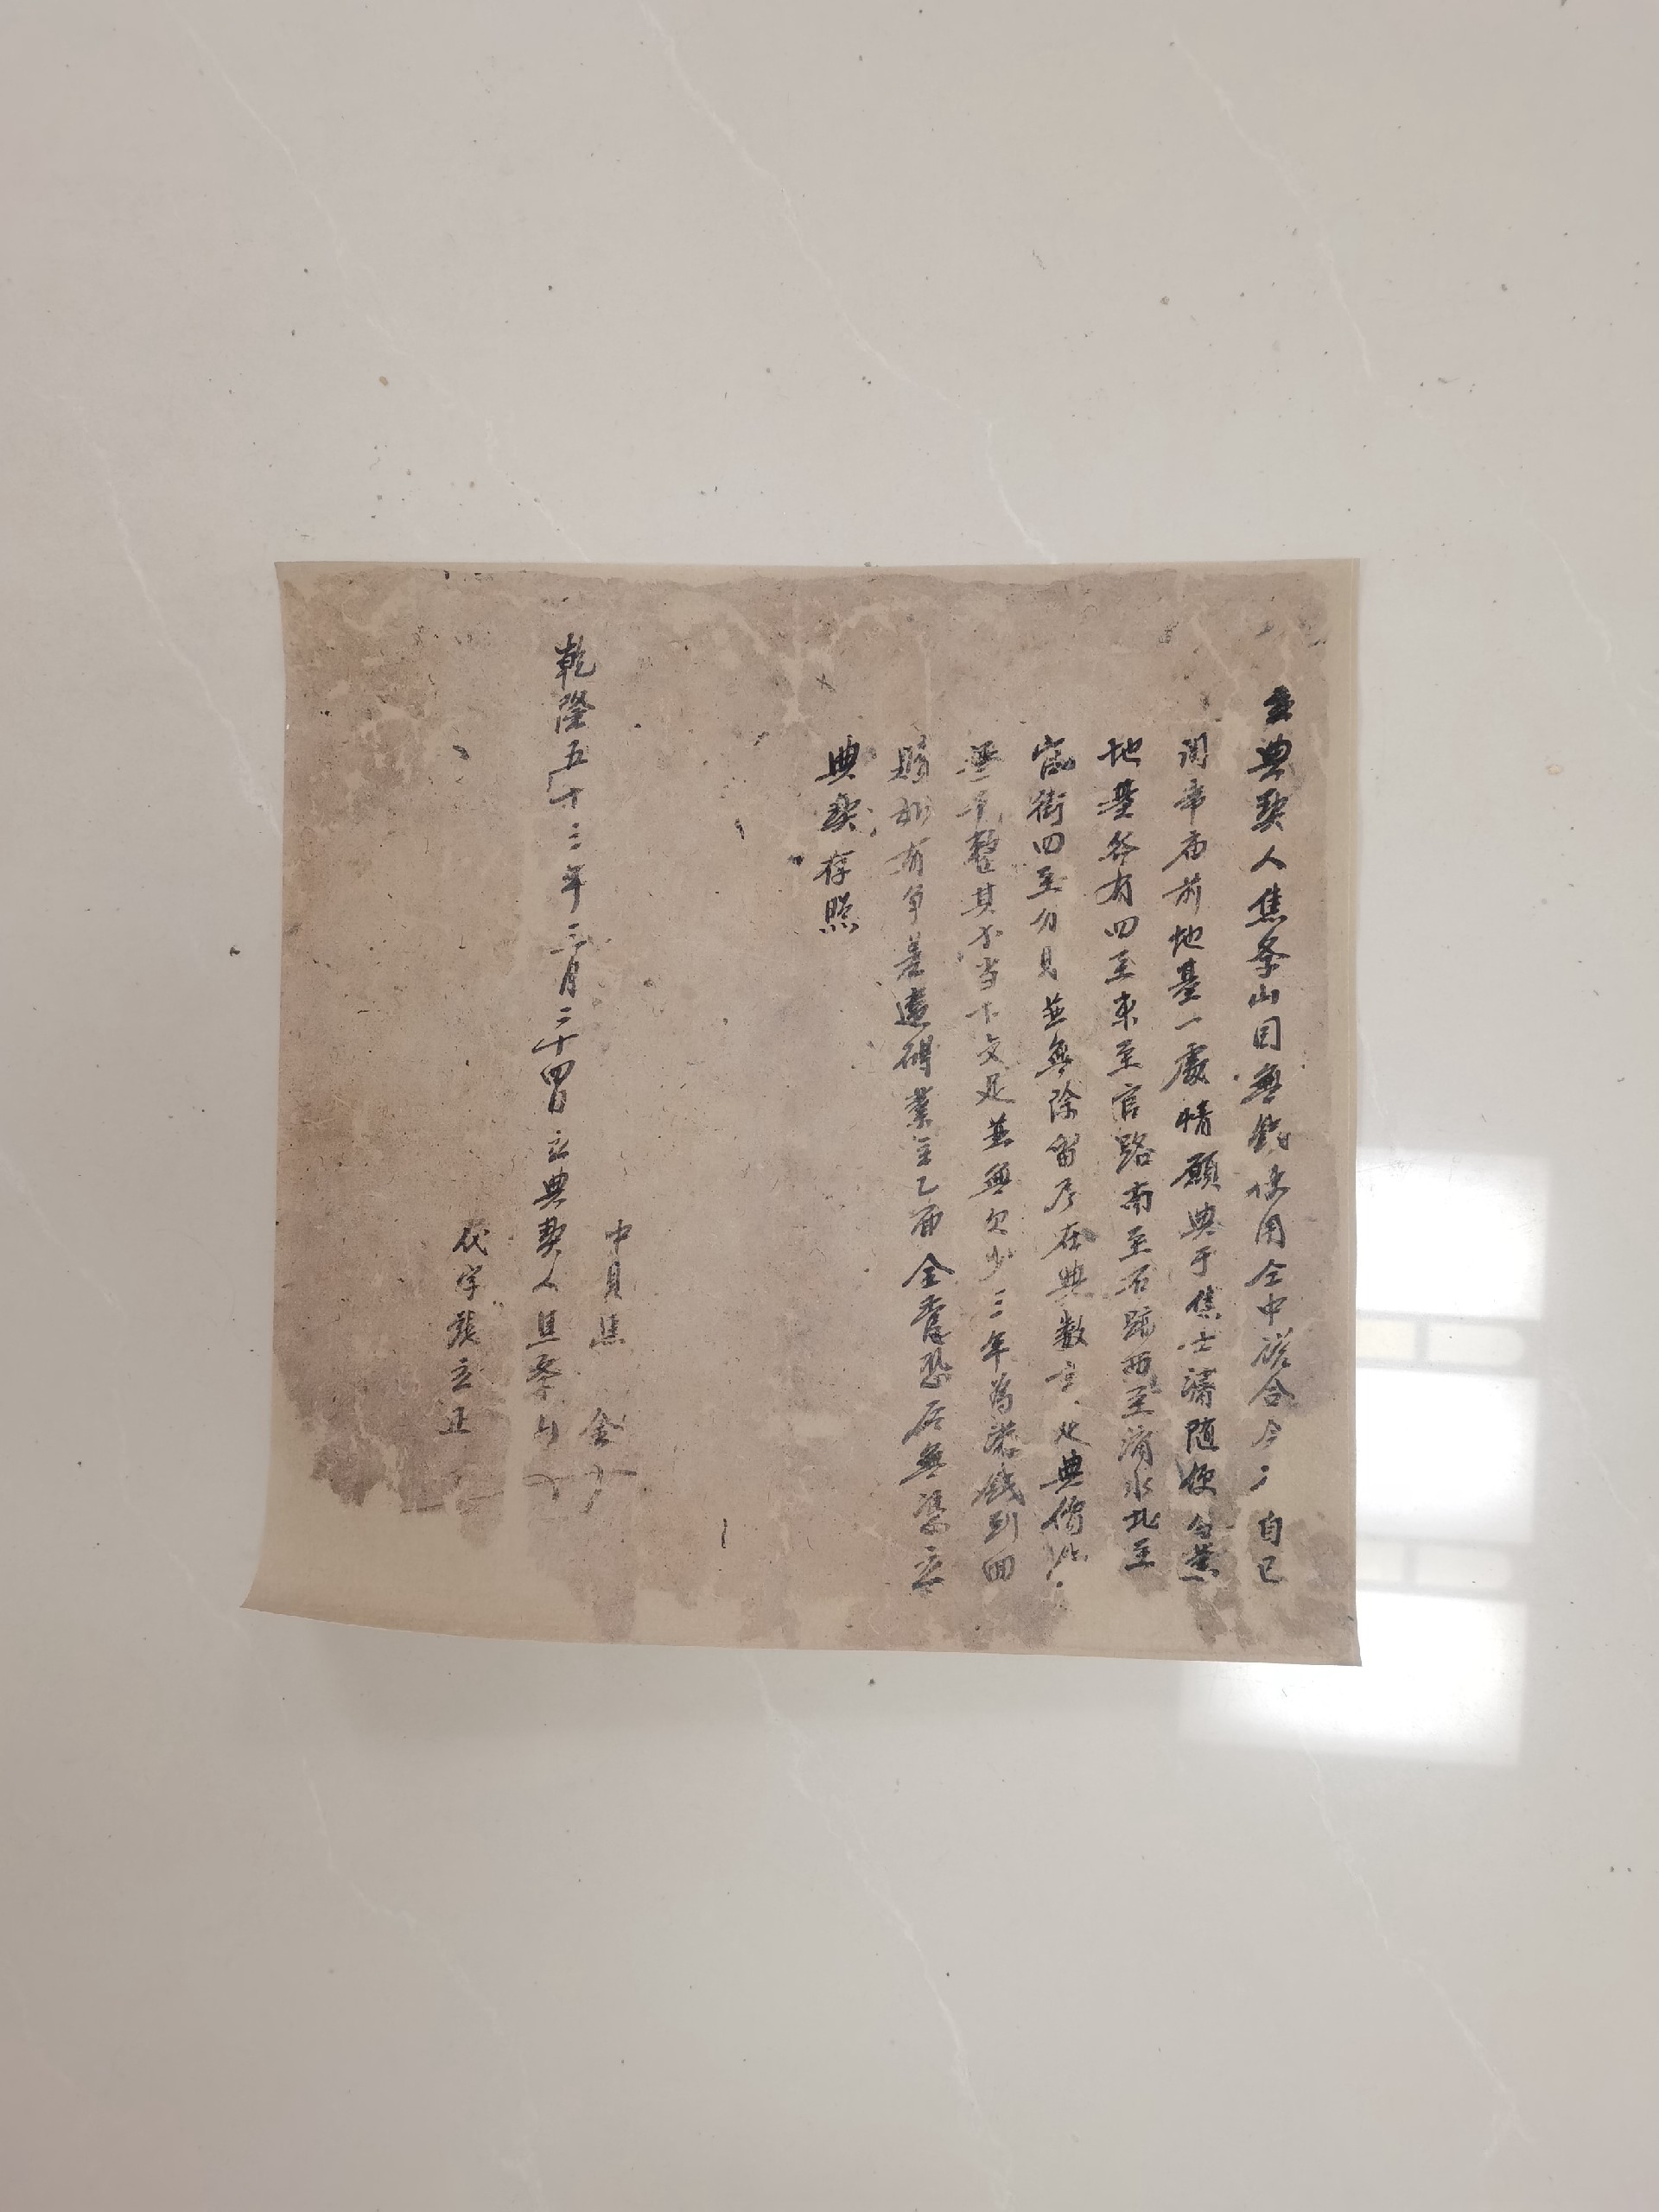 立典契人焦条山因無錢使用仝中磋合今自己
関帝庙前地基一處情願典于焦士清随便
地基各有四至東至官路南至石路西至滴水北至
官街四至分見並無除留在典數言定典價
整其錢當下交足並無欠少三年為滿錢到回
贖如有争差違碍業主乙面全管恐后無憑立
典契存照
中見焦 金
乾隆五十三年二月二十四日立典契人焦条山
代字張立正